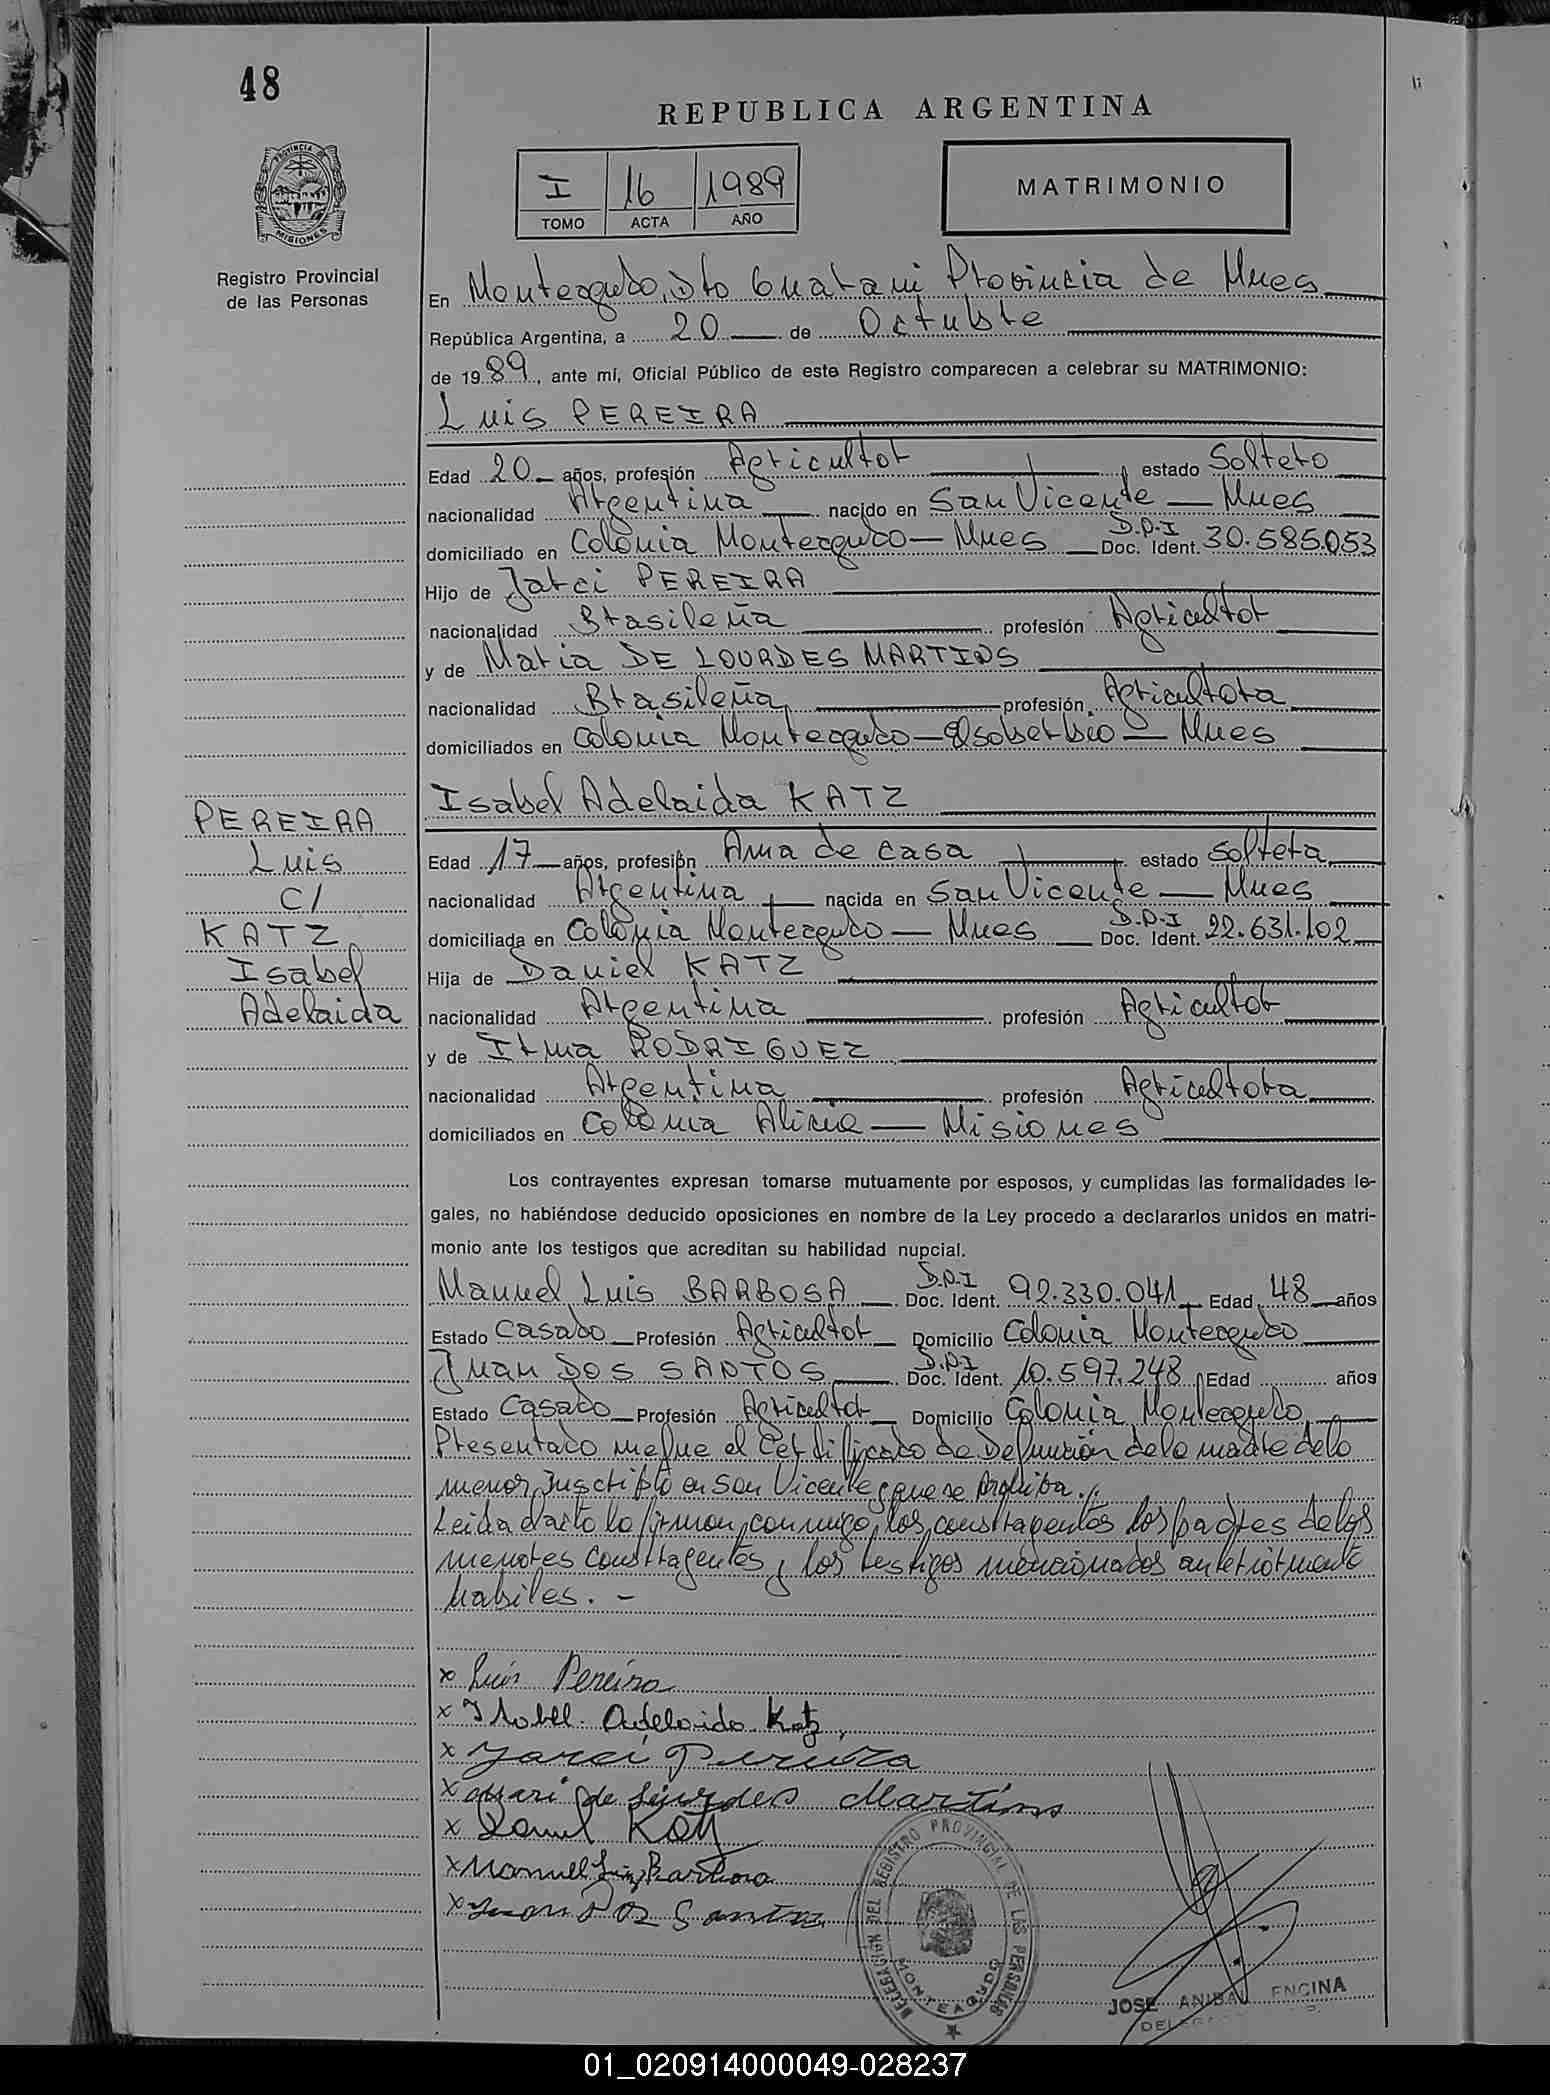 48
REPUBLICA ARGENTINA
I 16 1989
TOMO ACTA AÑO
MATRIMONIO
PROVINCIA
MISIONES
Registro Provincial
de las Personas
En Monteagudo, Dto Guarani Provincia de Mnes
República Argentina, a 20 de Octubre
de 1989, ante mí, Oficial Público de este Registro comparecen a celebrar su MATRIMONIO:
Luis PEREIRA
Edad 20 años, profesión Agricultor estado Soltero
nacionalidad Argentina nacido en San Vicente — Mnes
domiciliado en Colonia Monteagudo — Mnes D.N.I Doc. Ident. 30.585.053
Hijo de Jarci PEREIRA
nacionalidad Brasileña profesión Agricultor
y de Maria DE LOURDES MARTINS
nacionalidad Brasileña profesión Agricultora
domiciliados en Colonia Monteagudo — Elsoberbio — Mnes
Isabel Adelaida KATZ
PEREIRA
Luis
C/
KATZ
Isabel
Adelaida
Edad 17 años, profesión Ama de casa estado Soltera
nacionalidad Argentina nacida en San Vicente — Mnes
domiciliada en Colonia Monteagudo — Mnes D.N.I Doc. Ident. 22.631.102
Hija de Daniel KATZ
nacionalidad Argentina profesión Agricultor
y de Irma RODRIGUEZ
nacionalidad Argentina profesión Agricultora
domiciliados en Colonia Alicia — Misiones
Los contrayentes expresan tomarse mutuamente por esposos, y cumplidas las formalidades le-
gales, no habiéndose deducido oposiciones en nombre de la Ley procedo a declararlos unidos en matri-
monio ante los testigos que acreditan su habilidad nupcial.
Manuel Luis BARBOSA D.N.I Doc. Ident. 92.330.041 Edad 48 años
Estado Casado Profesión Agricultor Domicilio Colonia Monteagudo
Juan DOS SANTOS D.N.I Doc. Ident. 10.597.248 Edad años
Estado Casado Profesión Agricultor Domicilio Colonia Monteagudo
Presentado me fue el Certificado de Defunción dela madre dela
menor, Inscripto en San Vicente, que se Archiva.
Leida el acto lo firman, conmigo, los constrayentes los padres de los
menores constrayentes, y los testigos mencionados anteriormente
habiles. –
x Luis Pereira
x Isabel Adelaida Katz
x Jarci Pereira
x Mari de Lourdes Martins
x Daniel Katz
x Manuel Luis Barbosa
x Juan Dos Santos
DELEGACION DEL REGISTRO PROVINCIAL DE LAS PERSONAS
MONTEAGUDO
JOSE ANIBAL ENCINA
01_020914000049-028237